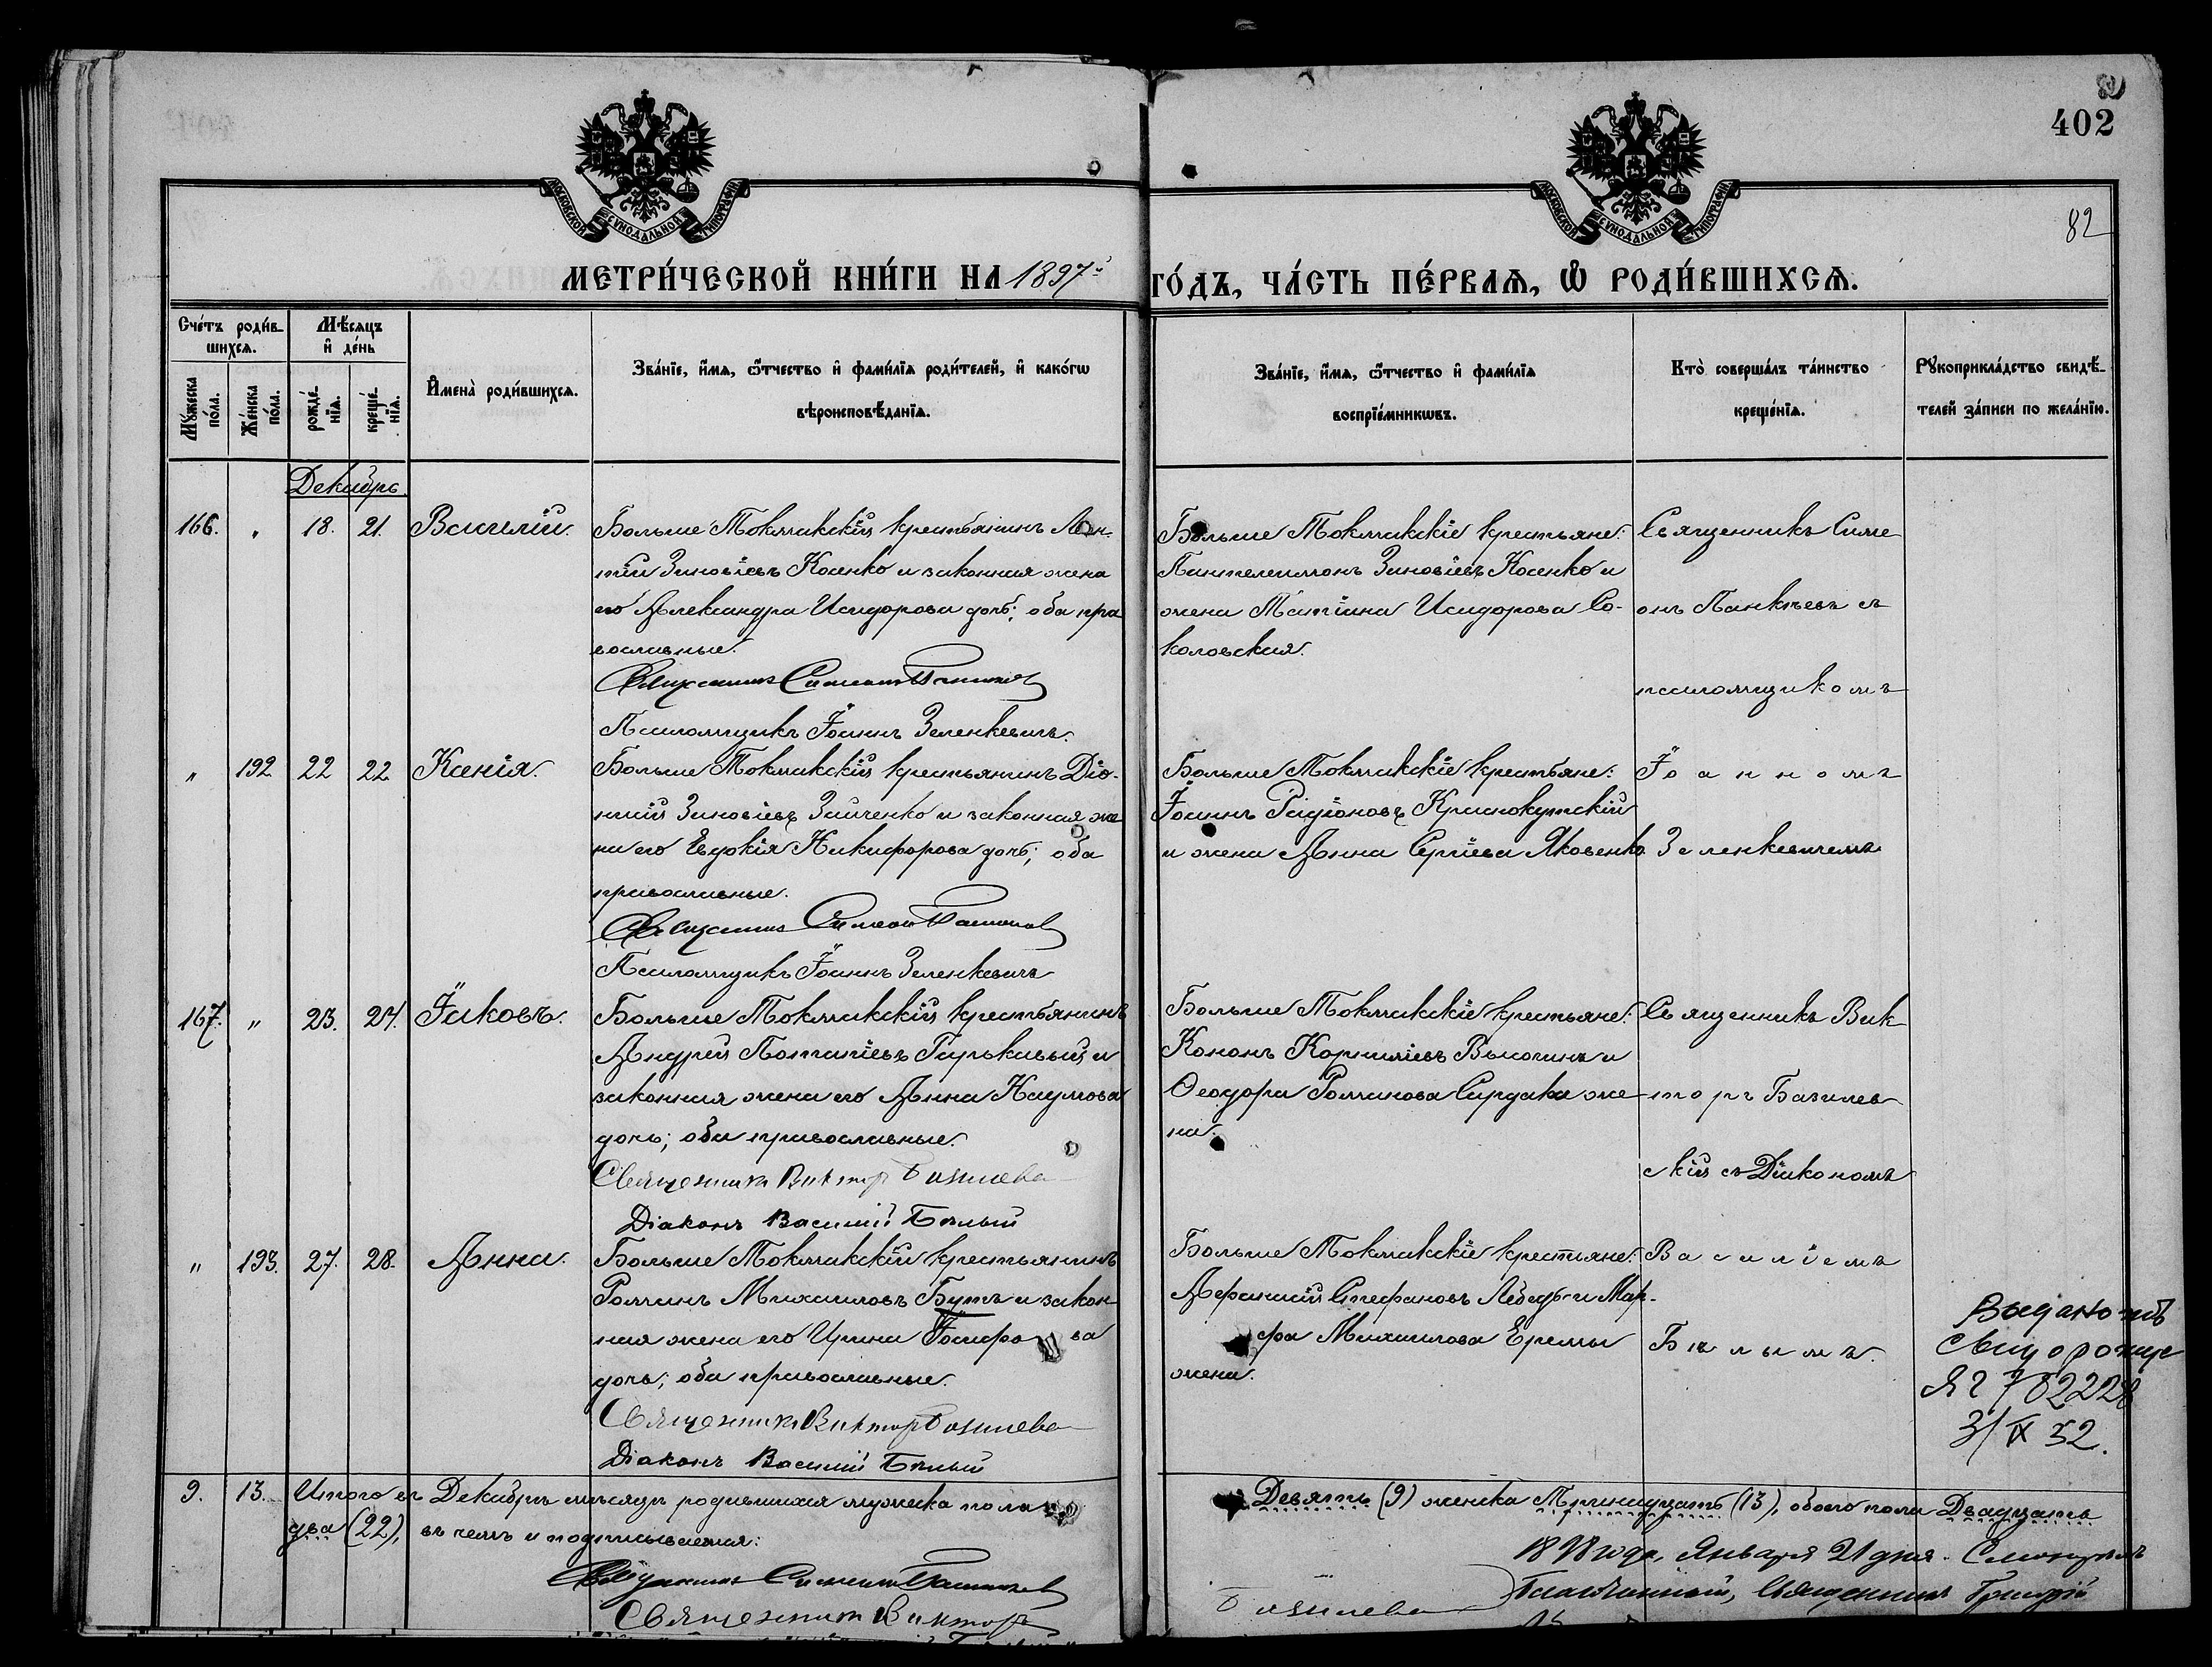 402
82
МОСКОВСКОЙ СѴНОДАЛЬНОЙ ТИПОГРАФІИ
МОСКОВСКОЙ СѴНОДАЛЬНОЙ ТИПОГРАФІИ
МЕТРИ́ЧЕСКОЙ КНИ́ГИ НА 1897й ГО́ДЪ, ЧА́СТЬ ПЕ́РВАѦ, Ѡ҆ РОДИ́ВШИХСѦ.
Сче́тъ роди́в-
шихсѧ.
Мѣ́сѧцъ
и҆ де́нь
Мꙋ́жеска
по́ла.
Же́нска
по́ла.
рожде́-
нїѧ.
креще́-
нїѧ.
И҆мена̀ роди́вшихсѧ.
Зва́нїе, и҆́мѧ, ѻ҆́тчество и҆ фами́лїѧ роди́телей, и҆ како́гѡ
вѣроисповѣ́данїѧ.
Зва́нїе, и҆́мѧ, ѻ҆́тчество и҆ фами́лїѧ
воспрїе́мникѡвъ.
Кто̀ соверша́лъ та́инство
креще́нїѧ.
Рꙋкоприкла́дство свидѣ́-
телей за́писи по жела́нїю.
Декабрь.
166. " 18. 21. Василій.
Больше Токмакскій крестьянинъ Леон-
тій Зиновіевъ Косенко и законная жена
его Александра Исидорова дочь; оба пра
вославные.
Священникъ Симеонъ
Псаломщикъ Іоаннъ Зеленкевичъ.
Больше Токмакскіе крестьяне:
Пантелеимонъ Зиновіевъ Косенко и
жена Татіана Исидорова Со-
коловская.
Священникъ Симе
онъ съ
псаломщикомъ
" 192 22 22 Ксенія.
Больше Токмакскій крестьянинъ Діо-
нисій Зиновіевъ Зайченко и законная же
на его Евдокія Никифорова дочь; оба
православные.
Священникъ Симеонъ
Псаломщикъ Іоаннъ Зеленкевичъ
Больше Токмакскіе крестьяне:
Іоаннъ Родіоновъ Краснокутскій
и жена Анна Сергіева Яковенко
Іоанномъ
Зеленкевичемъ
167. " 23. 24. Іаковъ.
Больше Токмакскій крестьянинъ
Андрей Потапіевъ Гарькавый и
законная жена его Анна Наумова
дочь; оба православные.
Священникъ Викторъ Базилевс
Діаконъ Василий Бѣлый
Больше Токмакскіе крестьяне:
Кононъ Корниліевъ Высочинъ и
Ѳеодора Романова Сардака же-
на.
Священникъ Вик
торъ Базилев
скій съ Діакономъ
" 193. 27. 28. Анна.
Больше Токмакскій крестьянинъ
Романъ Михаиловъ Бутъ и закон
ная жена его Ирина Іосифова
дочь; оба православные.
Священникъ Викторъ Базилевс
Діаконъ Василий Бѣлый
Больше Токмакскіе крестьяне:
Аѳанасій Стефановъ Лебедь и Мар-
фа Михаилова Еремы
жена.
Василіемъ
Бѣлымъ.
782228
3/IX 52.
9. 13. Итого въ Декабрѣ мѣсяцѣ родившихся мужеска пола Девять (9) женска Тринадцать (13), обоего пола Двадцать
два (22), въ чемъ и подписываемся:
Священникъ Симеонъ
Священникъ Викторъ Базилевс
1898 года, Января 21 дня. Смотрѣлъ
Благочинный, Священникъ Григорій